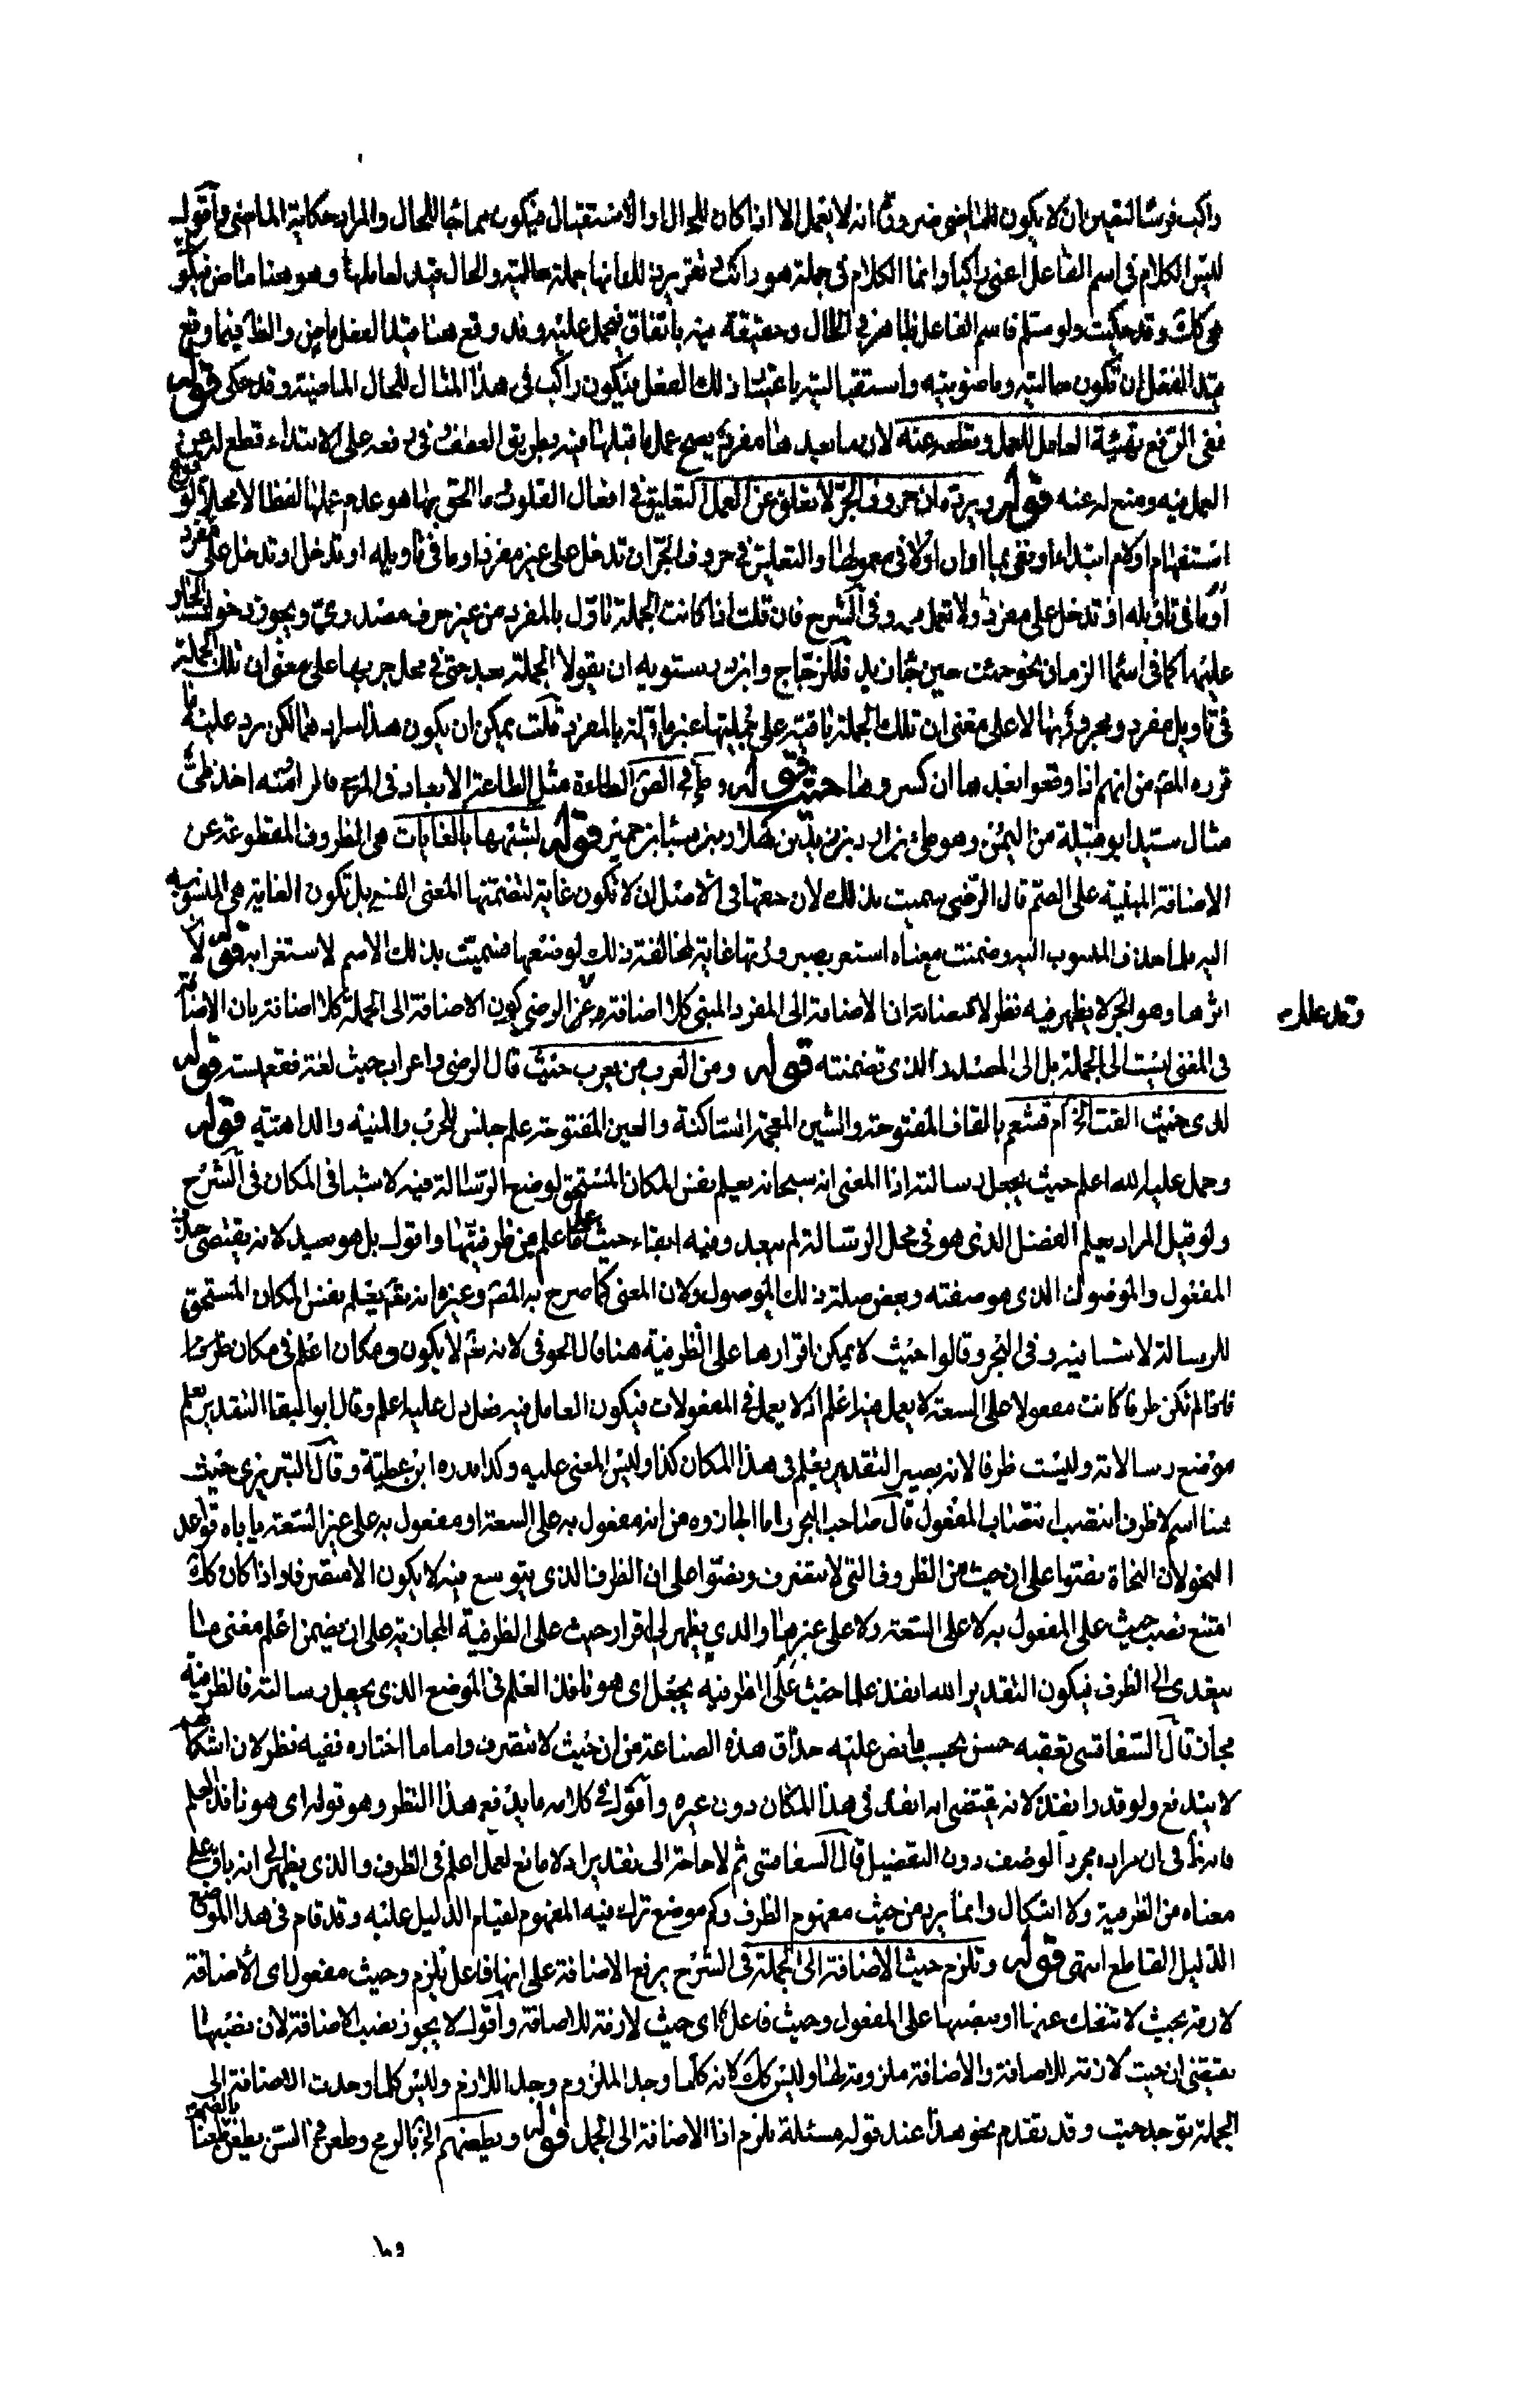 راكب فرسا لتعين ان لا يكون للماضى ضرورة انه لا يعمل الا اذا كان للحال او الاستقبال فيكون مماحبا للحال والمراد حكاية الماضى واقول
ليس الكلام فى اسم الفاعل اعنى راكبا وانما الكلام فى جملة هو راكب لانها جملة حالية والحال قيد لعاملها وهو هنا ماض
وقد حكيت ولو سلم فاسم الفاعل ظاهر فى الحال وحقيقة فيه باتفاق فيحمل عليه وقد وقع هنا قيدا لفعل ماض فيما وقع
قيد الفعل ان تكون حاليته وماضويته واستقباليته باعتبار ذلك الفعل فيكون راكب فى هذا المثال للحال الماضية وقد حكى قوله
ففى الرفع تهيئة العامل للعمل وقطعه عنه لان ما بعدها مفرد يصح عمل ما قبلها فيه بطريق العطف فى رفعه على الابتداء قطع له عن
العمل فيه ومنع له عنه قوله ويرده ان حروف الجر لا تعلق عن العمل التعليق فى افعال القلوب وما الحق بها هو عدم عملها لفظا لا محلا لوقوع
استفهام او لام ابتداء او نفى بما او ان او لا فى معمولها والتعليق فى حروف الجر ان تدخل على غير مفرد او ما فى تاويله او تدخل على مفرد
او ما فى تاويله او تدخل على مفرد ولا تعمل فيه وفى الشرح فان قلت اذا كانت الجملة تاول بالمفرد من غير حرف مصدرى ويجوز دخول الجار
عليها كما فى اسما الزمان نحو جئت حين جاء زيد فللزجاج وابن درستويه ان يقولا الجملة بعد حتى فى محل جر بها على معنى ان تلك الجملة
فى تاويل مفرد ومجرور بها لا على معنى ان تلك الجملة باقية على جمليتها غير ماولة بالمفرد قلت يمكن ان يكون هذا مرادهما لكن يرد عليه ما
قرره المص من انهم اذا وقعوا بعدها ان كسروها حيث قوله وطئ فى الصحاح الطاءة مثل الطاعة الابعاد فى المرعى قالوا منه اخذ طئ
مثال سيد ابو قبيلة من اليمن وهو طئ بن ادد بن زيد بن كهلان بن سبا بن حمير قوله لشبهها بالغايات هى الظروف المقطوعة عن
الاضافة المبنية على الضم قال الرضى سميت بذلك لان حقها فى الاصل ان لا تكون غاية لتضمنها المعنى النسبى بل تكون الغاية هى المنسوب
اليه فلما حذف المنسوب اليه وضمنت معناه استغرب صيرورتها غاية لمخالفة ذلك لوضعها فسميت بذلك الاسم لاستغرابه قوله لان
اثرها وهو الجر لا يظهر فيه نظر لاقتضائه ان الاضافة الى المفرد المبنى كلا اضافة وعن الرضى كون الاضافة الى الجملة كلا اضافة بان الاضافة
وقد علل
فى المعنى ليست الى الجملة بل الى المصدر الذى تضمنته قوله ومن العرب من يعرب حيث قال الرضى واعراب حيث لغة فقعسية قوله
لدى حيث القت الخ ام قشعم بالقاف المفتوحة والشين المعجمة الساكنة والعين المفتوحة علم جنس للحرب والمنية والداهية قوله
وحمل عليه الله اعلم حيث يجعل رسالته اذا المعنى انه سبحانه يعلم نفس المكان المستحق لوضع الرسالة فيه لا شيئا فى المكان فى الشرح
ولو قيل المراد يعلم الفضل الذى هو فى محل الرسالة لم يبعد وفيه ابقاء حيث على ما علم من ظرفيتها واقول بل هو بعيد لانه يقتضى حذف
المفعول والموصول الذى هو صفته وبعض صلة ذلك الموصول ولان المعنى كما صرح به المص وغيره انه تع يعلم نفس المكان المستحق
للرسالة لا شيئا فيه وفى البحر وقالوا حيث لا يمكن اقرارها على الظرفية هنا قال الحوفى لانه تع لا يكون فى مكان اعلم فى مكان
فاذا لم تكن ظرفا كانت مفعولا على السعة لا يعمل فيه اعلم اذ لا يعمل فى المفعولات فيكون العامل فيه فعل دل عليه اعلم وقال ابو البقا التقدير يعلم
موضع رسالاته وليست ظرفا لانه يصير التقدير يعلم فى هذا المكان كذا وليس المعنى عليه وكذا قدره ابن عطية وقال التبريزى حيث
هنا اسم لا ظرف انتصب انتصاب المفعول قال صاحب البحر واما ما اجازوه من انه مفعول به على السعة او مفعول به على غير السعة ياباه قواعد
النحو لان النحاة نصوا على ان حيث من الظروف التى لا تتصرف ونصوا على ان الظرف الذى يتوسع فيه لا يكون الا متصرفا واذا كان كذلك
امتنع نصب حيث على المفعول به لا على السعة ولا على غيرها والذى يظهر لى اقرار حيث على الظرفية المجازية على ان يضمن اعلم معنى ما
يتعدى الى الظرف فيكون التقدير الله انفذ علما حيث يجعل اى هو نافذ العلم فى الموضع الذى يجعل رسالته فالظرفية
مجاز قال السفاقسى تعقبه حسن بحسب ما نص عليه حذاق هذه الصناعة من ان حيث لا تتصرف واما ما اختاره ففيه نظر لان اشكاله
لا يندفع ولو قدر انفذ لانه يقتضى انه انفذ فى هذا المكان دون غيره واقول فى كلامه ما يدفع هذا النظر وهو قوله اى هو نافذ العلم
فانه فى ان مراده مجرد الوصف دون التفضيل قال السفاقسى ثم لا حاجة الى تقديره اذ لا مانع لعمل اعلم فى الظرف والذى يظهر لى انه باق على
معناه من الظرفية ولا اشكال وانما يرد من حيث مفهوم الظرف وكم موضع ترك فيه المفهوم لقيام الدليل عليه وقد قام فى هذا الموضع
الدليل القاطع انتهى قوله وتلزم حيث الاضافة الى الجملة فى الشرح برفع الاضافة على انها فاعل تلزم وحيث مفعول اى الاضافة
لازمة بحيث لا تنفك عنها او بنصبها على المفعول وحيث فاعل اى حيث لازمة للاضافة واقول لا يجوز نصب الاضافة لان نصبها
يقتضى ان حيث لازمة للاضافة والاضافة ملزومة لها وليس كذلك لانه كلما وجد الملزوم وجد اللازم وليس كلما وجدت الاضافة الى
الجملة توجد حيث وقد تقدم نحو هذا عند قوله مسئلة تلزم اذا الاضافة الى الجمل قوله ونطعنهم الخ بالرمح وطعن فى السن يطعن بالضم طعنا